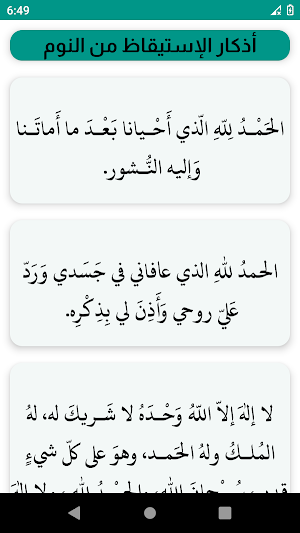 6:49
أذكار الإستيقاظ من النوم
الحَمْـدُ لِلّهِ الّذي أَحْـيانا بَعْـدَ ما أَماتَـنا
وَإليه النُّـشور.
الحمدُ للهِ الذي عافاني في جَسَدي وَرَدّ
عَليّ روحي وَأَذِنَ لي بِذِكْرِه.
لا إلهَ إلاّ اللّهُ وَحْـدَهُ لا شَـريكَ له، لهُ
المُلـكُ ولهُ الحَمـد، وهوَ على كلّ شيءٍ